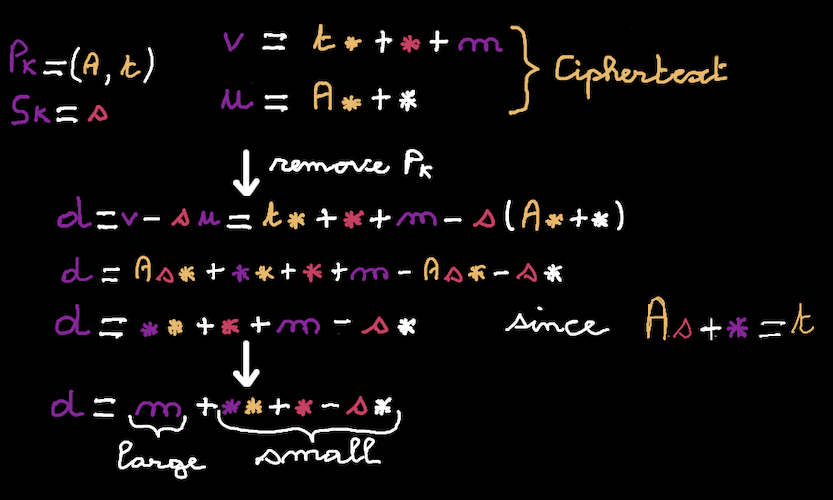 Pk=(A, t)
Sk= s
v = t * + * + m
u = A * + *
} Ciphertext
↓ remove Pk
d = v - s u = t * + * + m - s (A * + *)
d = A s * + * * + * + m - A s * - s *
d = * * + * + m - s * since A s + * = t
↓
d = m + * * + * - s *
large small